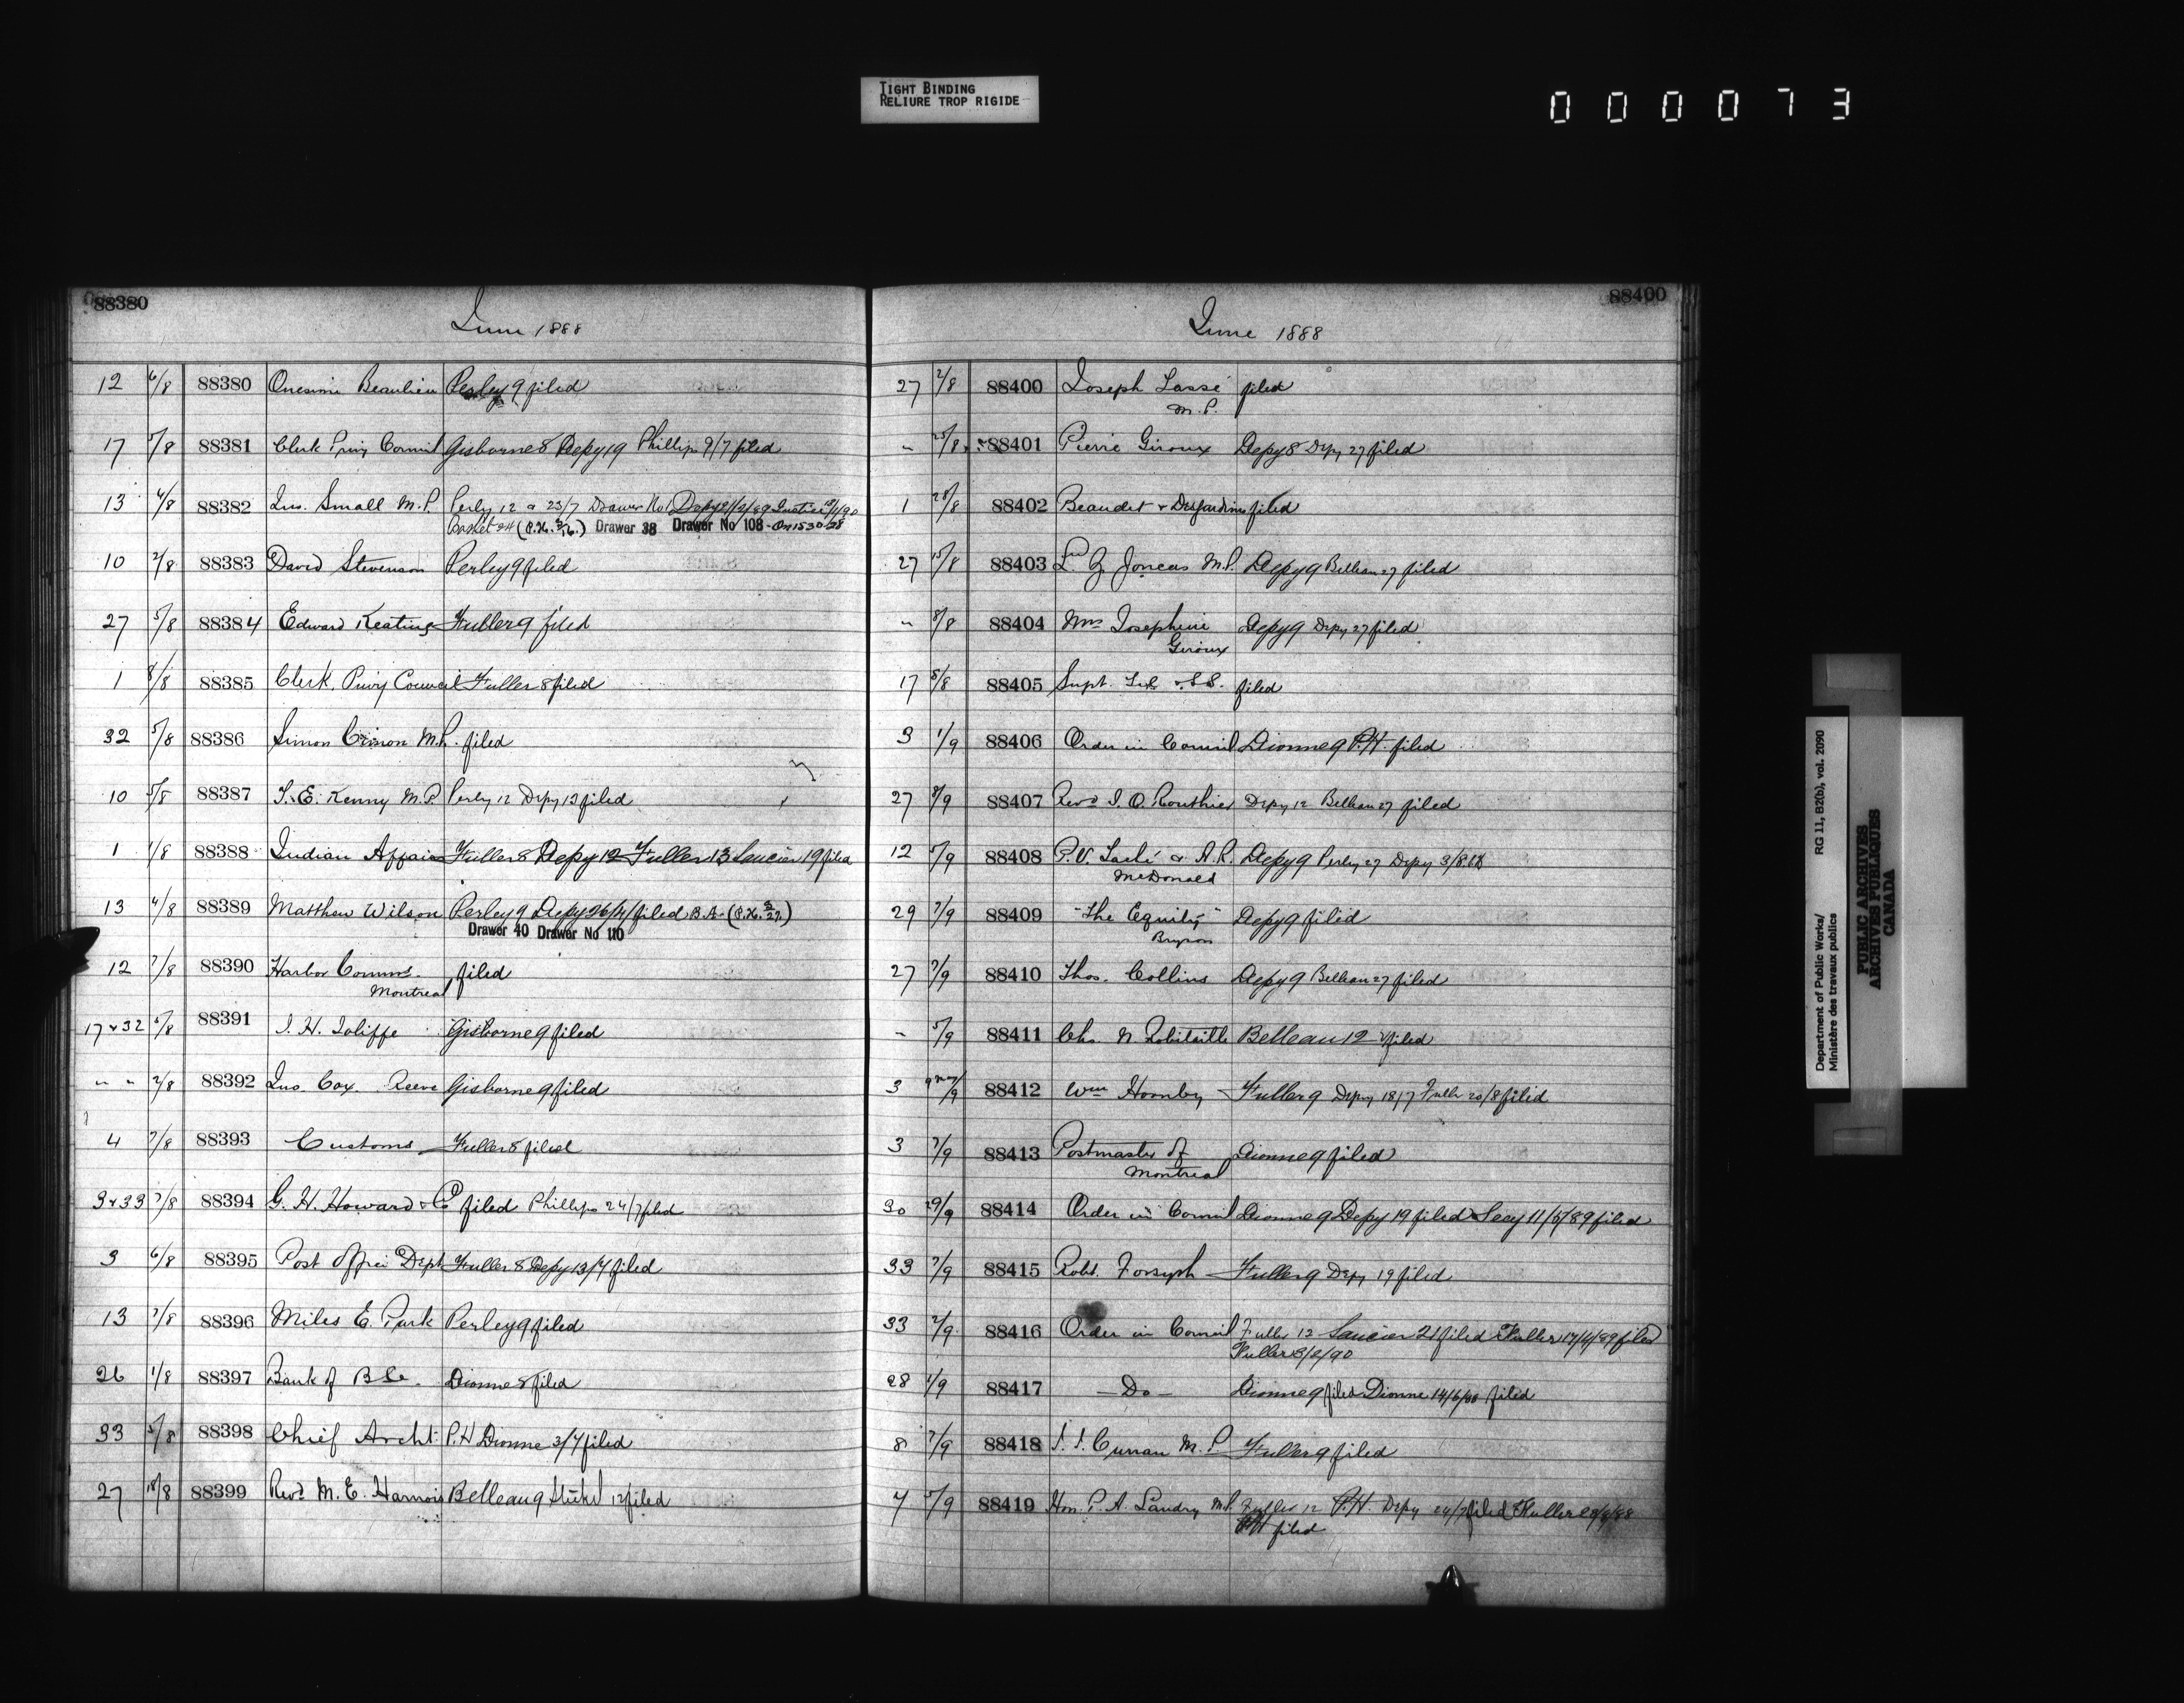 TIGHT BINDING
RELIURE TROP RIGIDE
000073
88380
June 1888
12 6/8 88380 Onesime Beaulieu Perley 9 filed
17 5/8 88381 Clerk Privy Council Gisborne 8 Depy 19 Phillips 9/7 filed
13 4/8 88382 Jno. Small M.P. Perley 12 & 23/7 Drawer No 1 Depy 21/2/89
Basket 24 Drawer 38 Drawer No 108
10 2/8 88383 David Stevenson Perley 9 filed
27 5/8 88384 Edward Keating Fuller 9 filed
1 8/8 88385 Clerk, Privy Council Fuller 8 filed
32 5/8 88386 Simon Cimon M.P. filed
10 5/8 88387 T. E. Kenny M.P. Perley 12 Depy 13 filed
1 1/8 88388 Indian Affairs Fuller 8 Depy 12 Fuller 13 Saucier 19 filed
13 4/8 88389 Matthew Wilson Perley 9 Depy 26/4/ filed B.A.
Drawer 40 Drawer No 110
12 7/8 88390 Harbor Comms. filed
Montreal
17 & 32 88391 J. H. Joliffe Gisborne 9 filed
" " 2/8 88392 Jno. Cox Reeve Gisborne 9 filed
4 7/8 88393 Customs Fuller 8 filed
3 & 33 7/8 88394 G. H. Howard & Co filed Phillips 24/7 filed
3 6/8 88395 Post Office Dept Fuller 8 Depy 13/7 filed
13 7/8 88396 Miles E. Park Perley 9 filed
26 1/8 88397 Bank of B.C. Dionne 8 filed
33 5/8 88398 Chief Archt. P.H Dionne 3/7 filed
27 18/8 88399 Revd. M. E. Harnois Belleau 9 12 filed
88400
June 1888
27 2/8 88400 Joseph Tassé filed
M.P.
" 25/8 88401 Pierre Giroux Depy 8 Depy 27 filed
1 28/8 88402 Beaudet & Desjardins filed
27 15/8 88403 Joncas M.P. Depy 9 Belleau 27 filed
" 8/8 88404 Mrs Josephine Depy 9 Depy 27 filed
Giroux
17 8/8 88405 Supt. Tel. & S.S. filed
3 1/9 88406 Order in Council Dionne 9 P.H. filed
27 8/9 88407 Revd J. O. Routhier Depy 12 Belleau 27 filed
12 5/9 88408 & A. R. Depy 9 Perley 27 Depy 3/8.88
McDonald
29 7/9 88409 "The Equity" Depy 9 filed
Bryson
27 7/9 88410 Thos. Collins Depy 9 Belleau 27 filed
" 5/9 88411 Chs. N Robitaille Belleau 12 filed
3 88412 Wm Hornby Fuller 9 Depy 18/7 Fuller 20/8 filed
3 7/9 88413 Postmaster of Dionne 9 filed
Montreal
30 29/9 88414 Order in Council Dionne 9 Depy 19 filed Secy 11/5/89 filed
33 7/9 88415 Robt. Forsyth Fuller 9 Depy 19 filed
33 2/9 88416 Order in Council Fuller 12 Saucier 21 filed Fuller 17/4/89 filed
Fuller 3/2/90
28 1/9 88417 — Do — Dionne 9 filed Dionne 14/6/90 filed
8 7/9 88418 J. J. Curran M.P. Fuller 9 filed
7 5/9 88419 Hon. P. A. Landry M.P. Fuller 12 P.H. Depy 24/7 filed Fuller
P.H filed
Department of Public Works/
Ministère des travaux publics
RG 11, B2(b), vol. 2090
PUBLIC ARCHIVES
ARCHIVES PUBLIQUES
CANADA